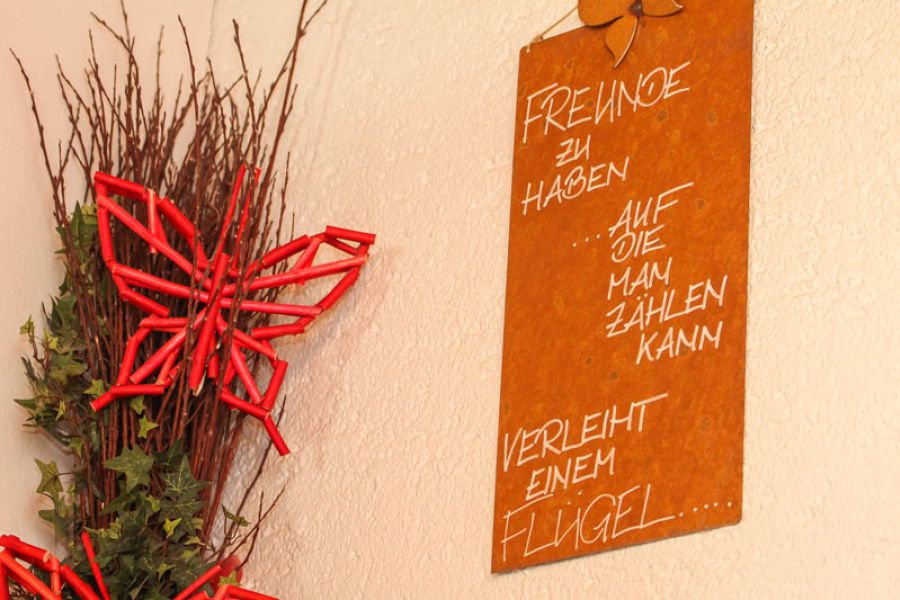 FREUNDE
ZU
HABEN
...AUF
DIE
MAN
ZÄHLEN
KANN
VERLEIHT
EINEM
FLÜGEL.....